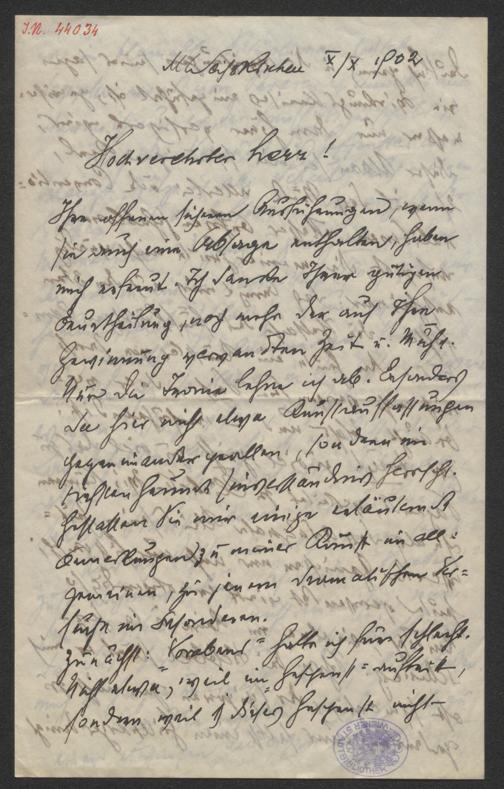 J.N. 44034
X/X 1902
Hochverehrter Herr!
Ihre offenen Ausführungen, wenn
sie auch eine Absage enthalten, haben
mich erfreut. Ich danke Ihrer gütigen
Beurtheilung, noch mehr der auf Ihre
Gewinnung verwandten Zeit u. Mühe.
Nur die Ironie lehne ich ab. Besonders
da hier nicht etwa Kunstauffassungen
gegeneinander prallen, sondern ein
Missverständnis herrscht.
Gestatten Sie mir einige erläuternde
Bemerkungen zu meiner Kunst im all=
gemeinen, zu jenem dramatischen Ver=
suche im besonderen.
Zunächst: "Vorabend" halte ich für schlecht.
Nicht etwa, weil ein Gespenst auftritt,
sondern weil dieses Gespenst nicht